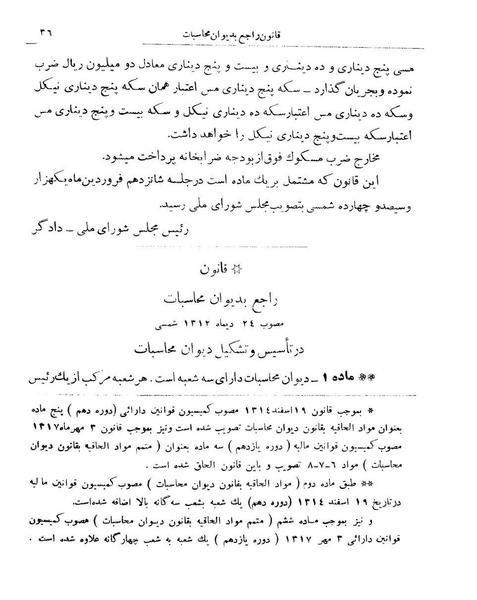 قانون راجع بدیوان محاسبات ۳۶
مسی پنج دیناری و ده دیناری و بیست و پنج دیناری معادل دو میلیون ریال ضرب
نموده و بجریان گذارد ــ سکه پنج دیناری مس اعتبار همان سکه پنج دیناری نیکل
وسکه ده دیناری مس اعتبار سکه ده دیناری نیکل و سکه بیست وپنج دیناری مس
اعتبارسکه بیست وپنج دیناری نیکل را خواهد داشت.
مخارج ضرب مسکوک فوق ازبودجه ضرابخانه پرداخت میشود.
این قانون که مشتمل بریک ماده است درجلسه شانزدهم فروردین ماه یکهزار
وسیصدو چهارده شمسی بتصویب مجلس شورای ملی رسید.
رئیس مجلس شورای ملی ــ دادگر
* قانون
راجع بدیوان محاسبات
مصوب ۲۴ دیماه ۱۳۱۲ شمسی
در تأسیس و تشکیل دیوان محاسبات
** ماده ۱ ــ دیوان محاسبات دارای سه شعبه است. هر شعبه مرکب از یک رئیس
* بموجب قانون ۱۹ اسفند ۱۳۱۴ مصوب کمیسیون قوانین دارائی (دوره دهم) پنج ماده
بعنوان مواد الحاقیه بقانون دیوان محاسبات تصویب شده است ونیز بموجب قانون ۳ مهرماه ۱۳۱۷
مصوب کمیسیون قوانین مالیه (دوره یازدهم) سه ماده بعنوان (متمم مواد الحاقیه بقانون دیوان
محاسبات) مواد ۶-۷-۸ تصویب و باین قانون الحاق شده است.
** طبق ماده دوم (مواد الحاقیه بقانون دیوان محاسبات) مصوب کمیسیون قوانین مالیه
در تاریخ ۱۹ اسفند ۱۳۱۴ (دوره دهم) یک شعبه بشعب سه گانه بالا اضافه شده است.
و نیز بموجب ماده ششم (متمم مواد الحاقیه بقانون دیوان محاسبات) مصوب کمیسیون
قوانین دارائی ۳ مهر ۱۳۱۷ (دوره یازدهم) یک شعبه به شعب چهارگانه علاوه شده است.